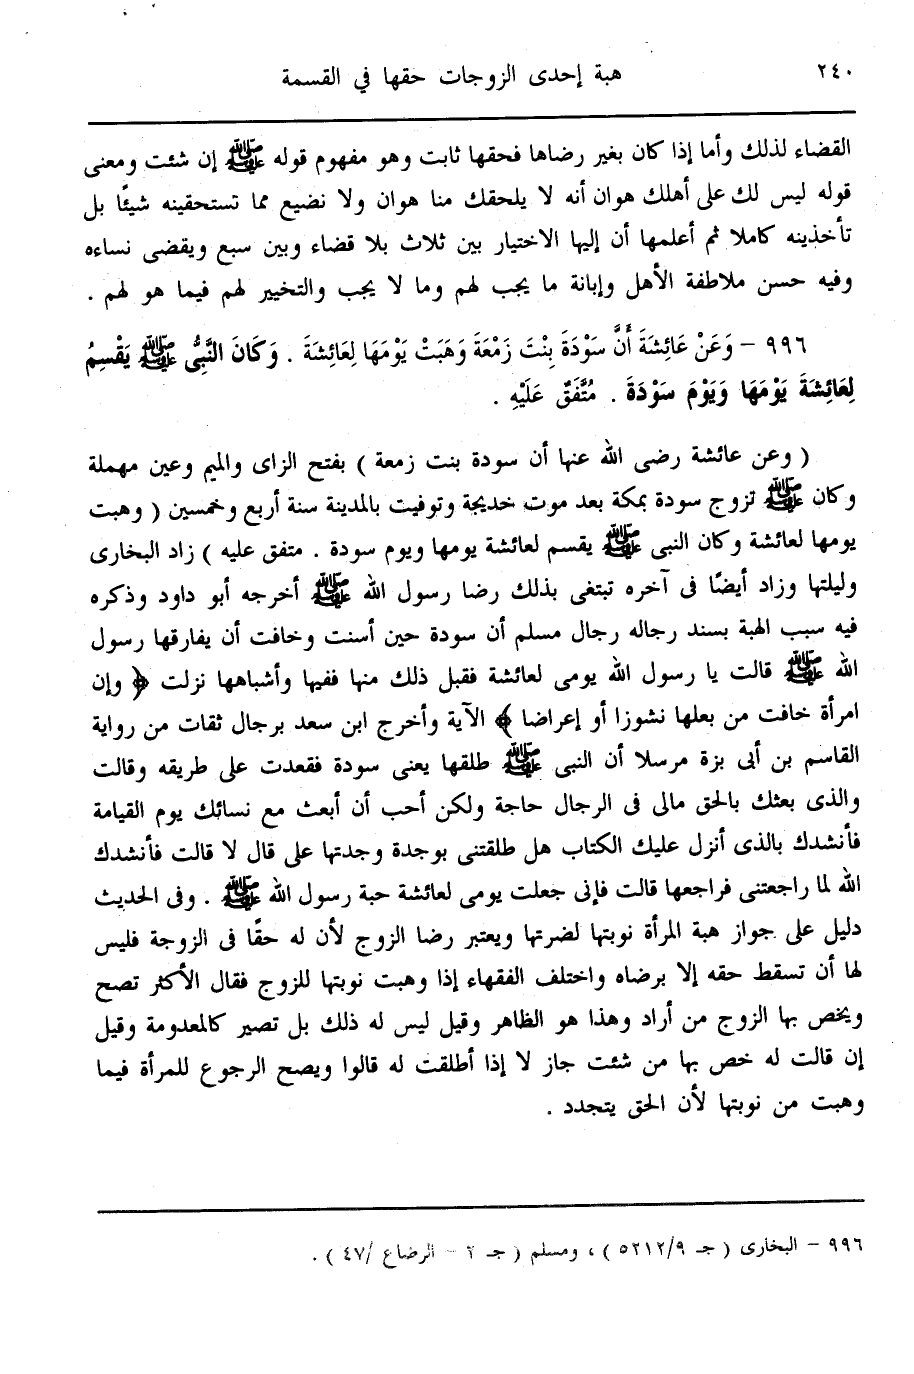 ٢٤٠
هبة إحدى الزوجات حقها في القسمة
القضاء لذلك وأما إذا كان بغير رضاها فحقها ثابت وهو مفهوم قوله ﷺ إن شئت ومعنى
قوله ليس لك على أهلك هوان أنه لا يلحقك منا هوان ولا نضيع مما تستحقينه شيئًا بل
تأخذينه كاملا ثم أعلمها أن إليها الاختيار بين ثلاث بلا قضاء وبين سبع ويقضى نساءه
وفيه حسن ملاطفة الأهل وإبانة ما يجب لهم وما لا يجب والتخيير لهم فيما هو لهم .
٩٩٦ – وَعَنْ عَائِشَةَ أَنَّ سَوْدَةَ بِنْتَ زَمْعَةَ وَهَبَتْ يَوْمَهَا لِعَائِشَةَ . وَكَانَ النَّبِىُّ ﷺ يَقْسِمُ
لِعَائِشَةَ يَوْمَهَا وَيَوْمَ سَوْدَةَ . مُتَّفَقٌ عَلَيْهِ .
( وعن عائشة رضى الله عنها أن سودة بنت زمعة ) بفتح الزاى والميم وعين مهملة
وكان ﷺ تزوج سودة بمكة بعد موت خديجة وتوفيت بالمدينة سنة أربع وخمسين ( وهبت
يومها لعائشة وكان النبى ﷺ يقسم لعائشة يومها ويوم سودة . متفق عليه ) زاد البخارى
وليلتها وزاد أيضًا فى آخره تبتغى بذلك رضا رسول الله ﷺ أخرجه أبو داود وذكره
فيه سبب الهبة بسند رجاله رجال مسلم أن سودة حين أسنت وخافت أن يفارقها رسول
الله ﷺ قالت يا رسول الله يومى لعائشة فقبل ذلك منها ففيها وأشباهها نزلت ﴿ وإن
امرأة خافت من بعلها نشوزا أو إعراضا ﴾ الآية وأخرج ابن سعد برجال ثقات من رواية
القاسم بن أبى بزة مرسلا أن النبى ﷺ طلقها يعنى سودة فقعدت على طريقه وقالت
والذى بعثك بالحق مالى فى الرجال حاجة ولكن أحب أن أبعث مع نسائك يوم القيامة
فأنشدك بالذى أنزل عليك الكتاب هل طلقتنى بوجدة وجدتها على قال لا قالت فأنشدك
الله لما راجعتنى فراجعها قالت فإنى جعلت يومى لعائشة حبة رسول الله ﷺ . وفى الحديث
دليل على جواز هبة المرأة نوبتها لضرتها ويعتبر رضا الزوج لأن له حقًا فى الزوجة فليس
لها أن تسقط حقه إلا برضاه واختلف الفقهاء إذا وهبت نوبتها للزوج فقال الأكثر تصح
ويخص بها الزوج من أراد وهذا هو الظاهر وقيل ليس له ذلك بل تصير كالمعدومة وقيل
إن قالت له خص بها من شئت جاز لا إذا أطلقت له قالوا ويصح الرجوع للمرأة فيما
وهبت من نوبتها لأن الحق يتجدد .
٩٩٦ – البخارى ( جـ ٥٢١٢/٩ ) ، ومسلم ( جـ ٢ – الرضاع /٤٧ ) .